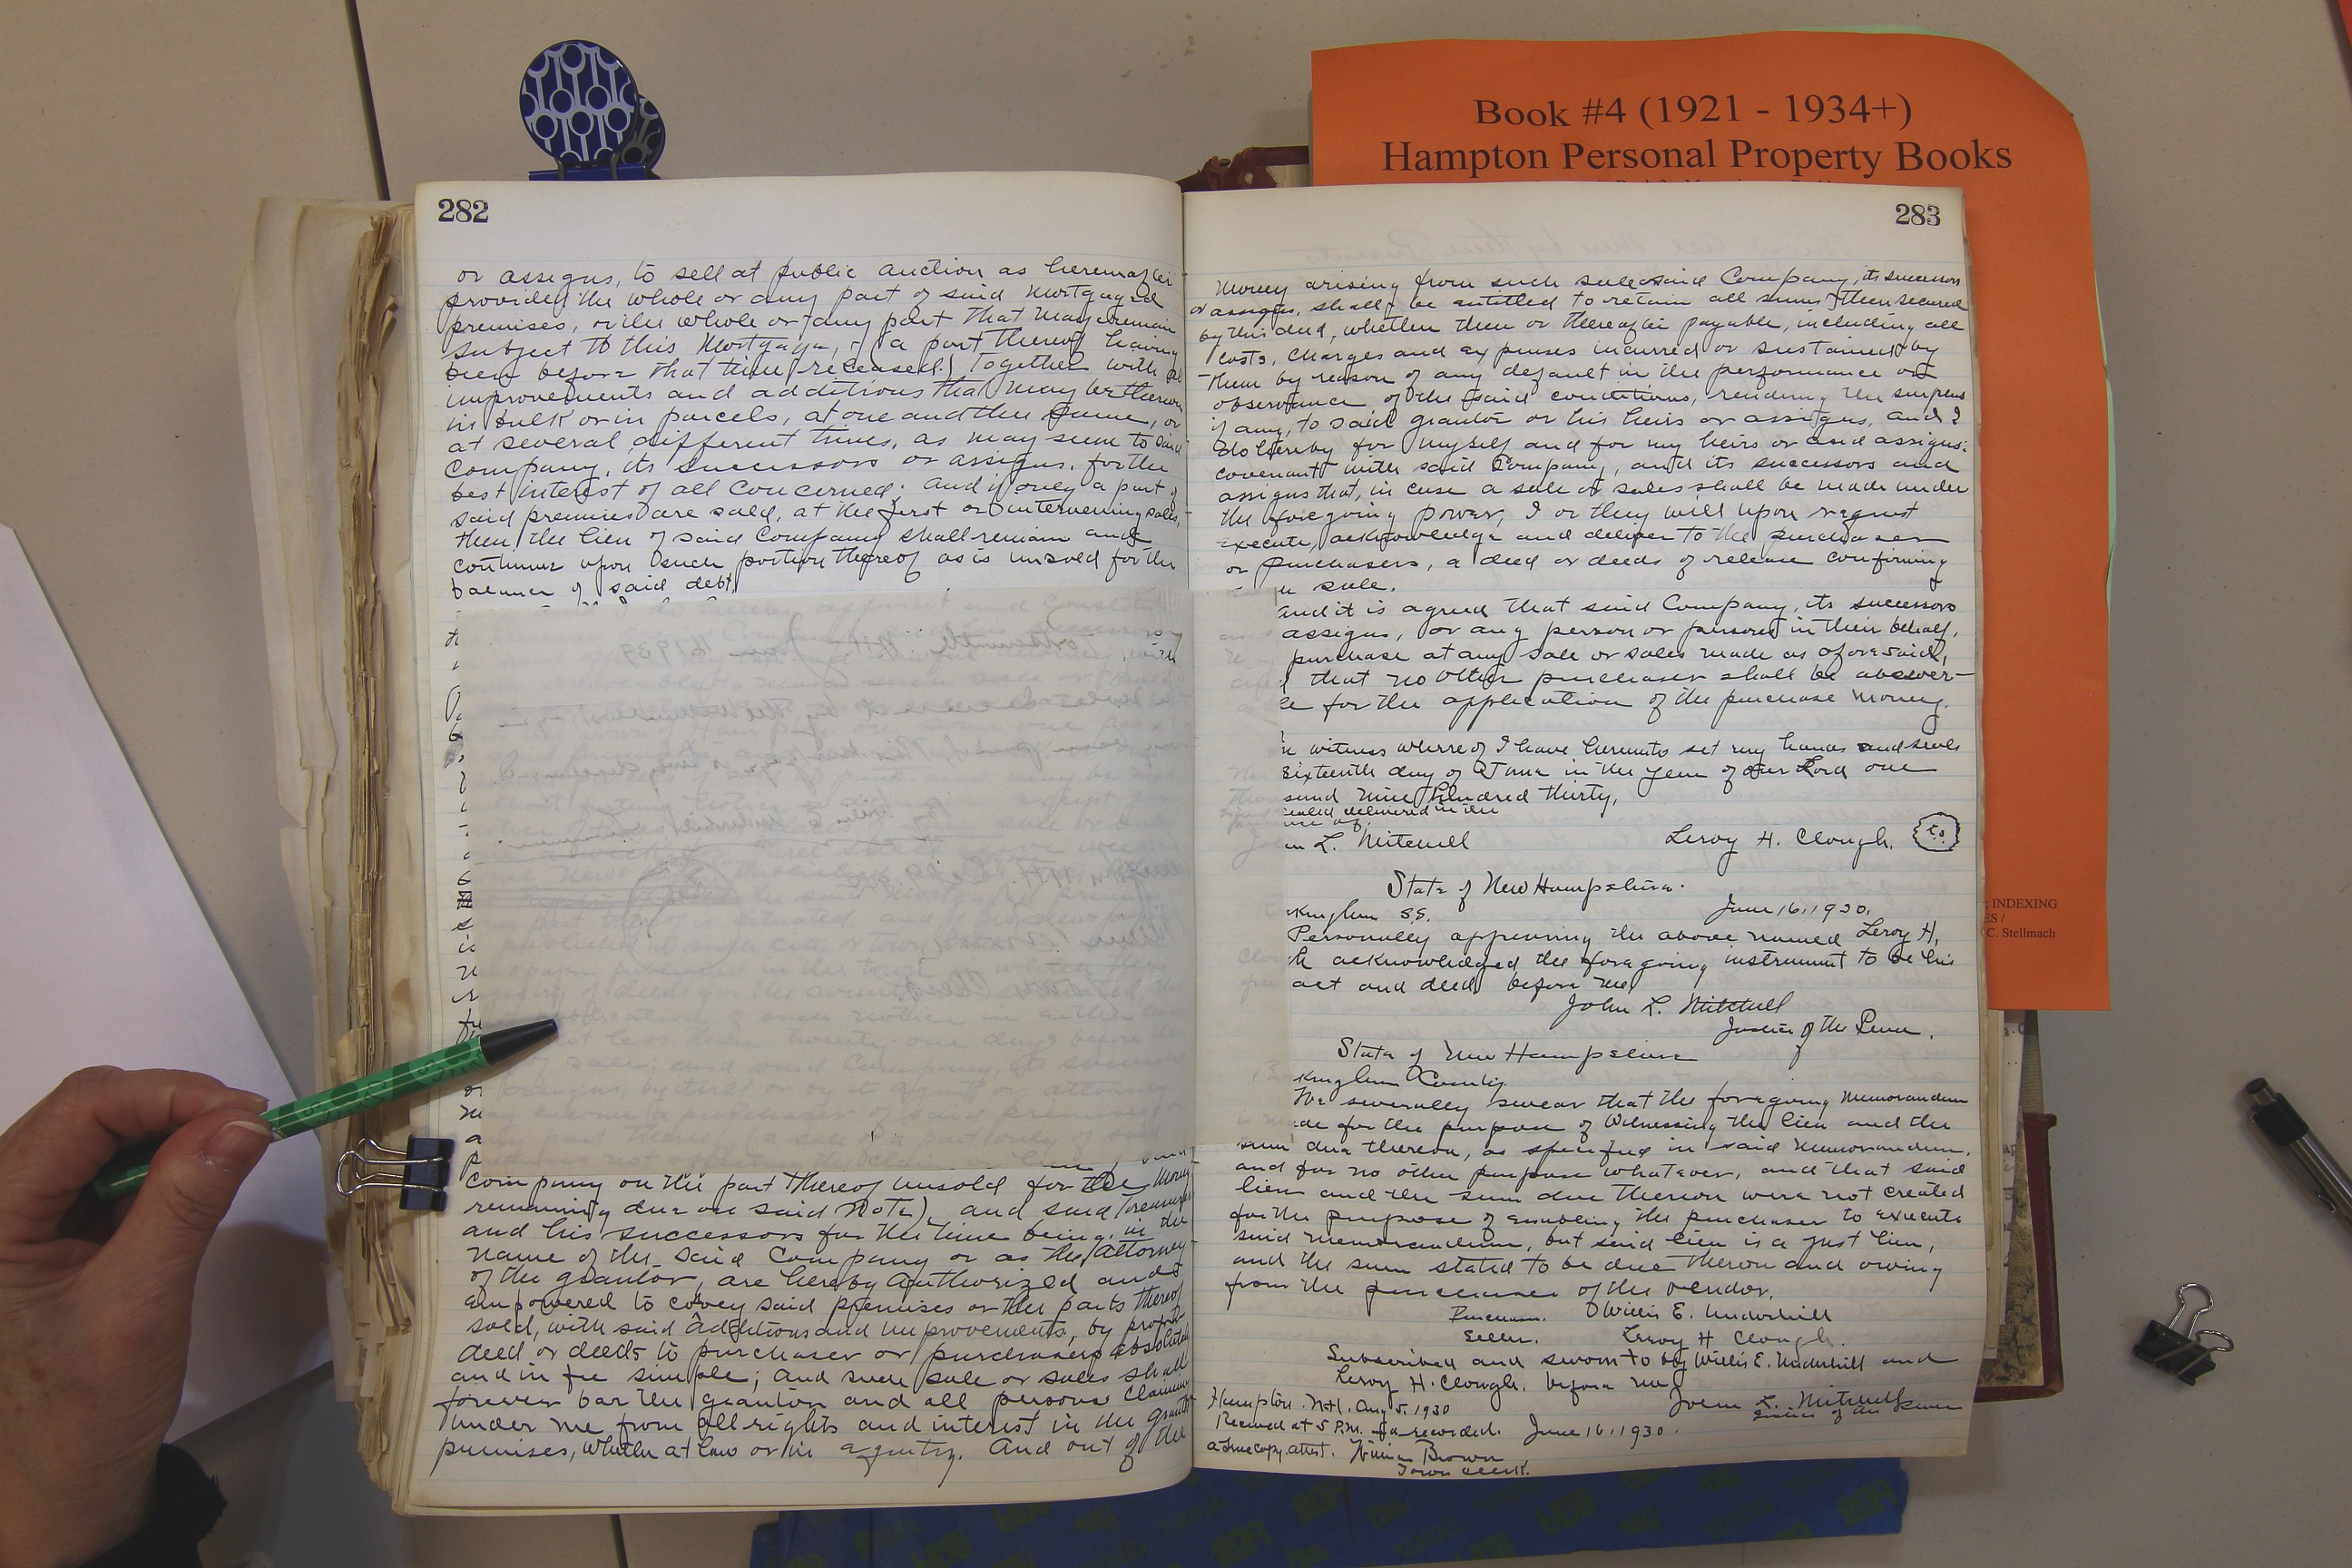 Book #4 (1921 - 1934+)
Hampton Personal Property Books
INDEXING
ES /
C. Stellmach
282
or assigns, to sell at public auction as hereinafter
provided the whole or any part of said mortgaged
premises, or the whole or any part that may remain
subject to this Mortgage, a part thereof having
been before that time released) together with all
improvements and additions that may be thereon
in bulk or in parcels, at one and the same, or
at several different times, as may seem to said
Company, its successors or assigns, for the
best interest of all concerned; and if only a part of
said premises are sold, at the first or intervening sales,
then the lien of said Company shall remain and
continue upon such portion thereof as is unsold for the
balance of said debt,
Company on the part thereof unsold for the money
remaining due on said Note), and said Treasurer
and his successors for the time being, in the
name of the said Company or as the attorney
of the grantor, are hereby authorized and
empowered to covey said premises or the parts thereof
sold, with said additions and improvements, by proper
deed or deeds to purchaser or purchasers absolutely
and in fee simple; and such sale or sales shall
forever bar the grantor and all persons claiming
under me from all rights and interest in the granted
premises, whether at law or in equity. And out of the
283
money arising from such sale said Company, its successors
or assigns, shall be entitled to retain all sums then secured
by this deed, whether then or thereafter payable, including all
costs, charges and expenses incurred or sustained by
them by reason of any default in the performance or
observance of the said conditions, rendering the surplus
if any, to said grantor or his heirs or assigns, and I
do hereby for myself and for my heirs or and assigns:
covenant with said Company, and its successors and
assigns that, in case a sale or sales shall be made under
the foregoing power, I or they will upon request
execute, acknowledge and deliver to the purchaser
or purchasers, a deed or deeds of release confirming
sale.
and it is agreed that said Company, its successors
assigns, or any person or persons in their behalf,
purchase at any sale or sales made as aforesaid,
that no other purchaser shall be answer-
for the application of the purchase money.
witness whereof I have hereunto set my hands and seals
sixteenth day of June in the year of our Lord one
sand nine hundred thirty,
sealed delivered in the
of
L. Mitchell Leroy H. Clough. L.S.
State of New Hampshire.
kingham SS. June 16, 1930.
Personally appearing the above named Leroy H.
h acknowledged the foregoing instrument to be his
act and deed, before me,
John L. Mitchell
Justice of the Peace.
State of New Hampshire
kingham County.
We severally swear that the foregoing memorandum
de for the purpose of Witnessing the lien and the
sum due thereon, as specified in said memorandum,
and for no other purpose whatever, and that said
lien and the sum due thereon were not created
for the purpose of enabling the purchaser to execute
said memorandum, but said lien is a just lien,
and the sum stated to be due theron and owing
from the purchaser of the vendor.
Purchaser. Willis E. Underhill
Seller. Leroy H. Clough.
Subscribed and sworn to by Willis E. Underhill and
Leroy H. Clough. before me,
John L. Mitchell
Justice of the Peace
Hampton. N.H. Aug 5, 1930
Received at 5 P.M. recorded. June 16, 1930.
a true copy, attest. Brown
Town Clerk.